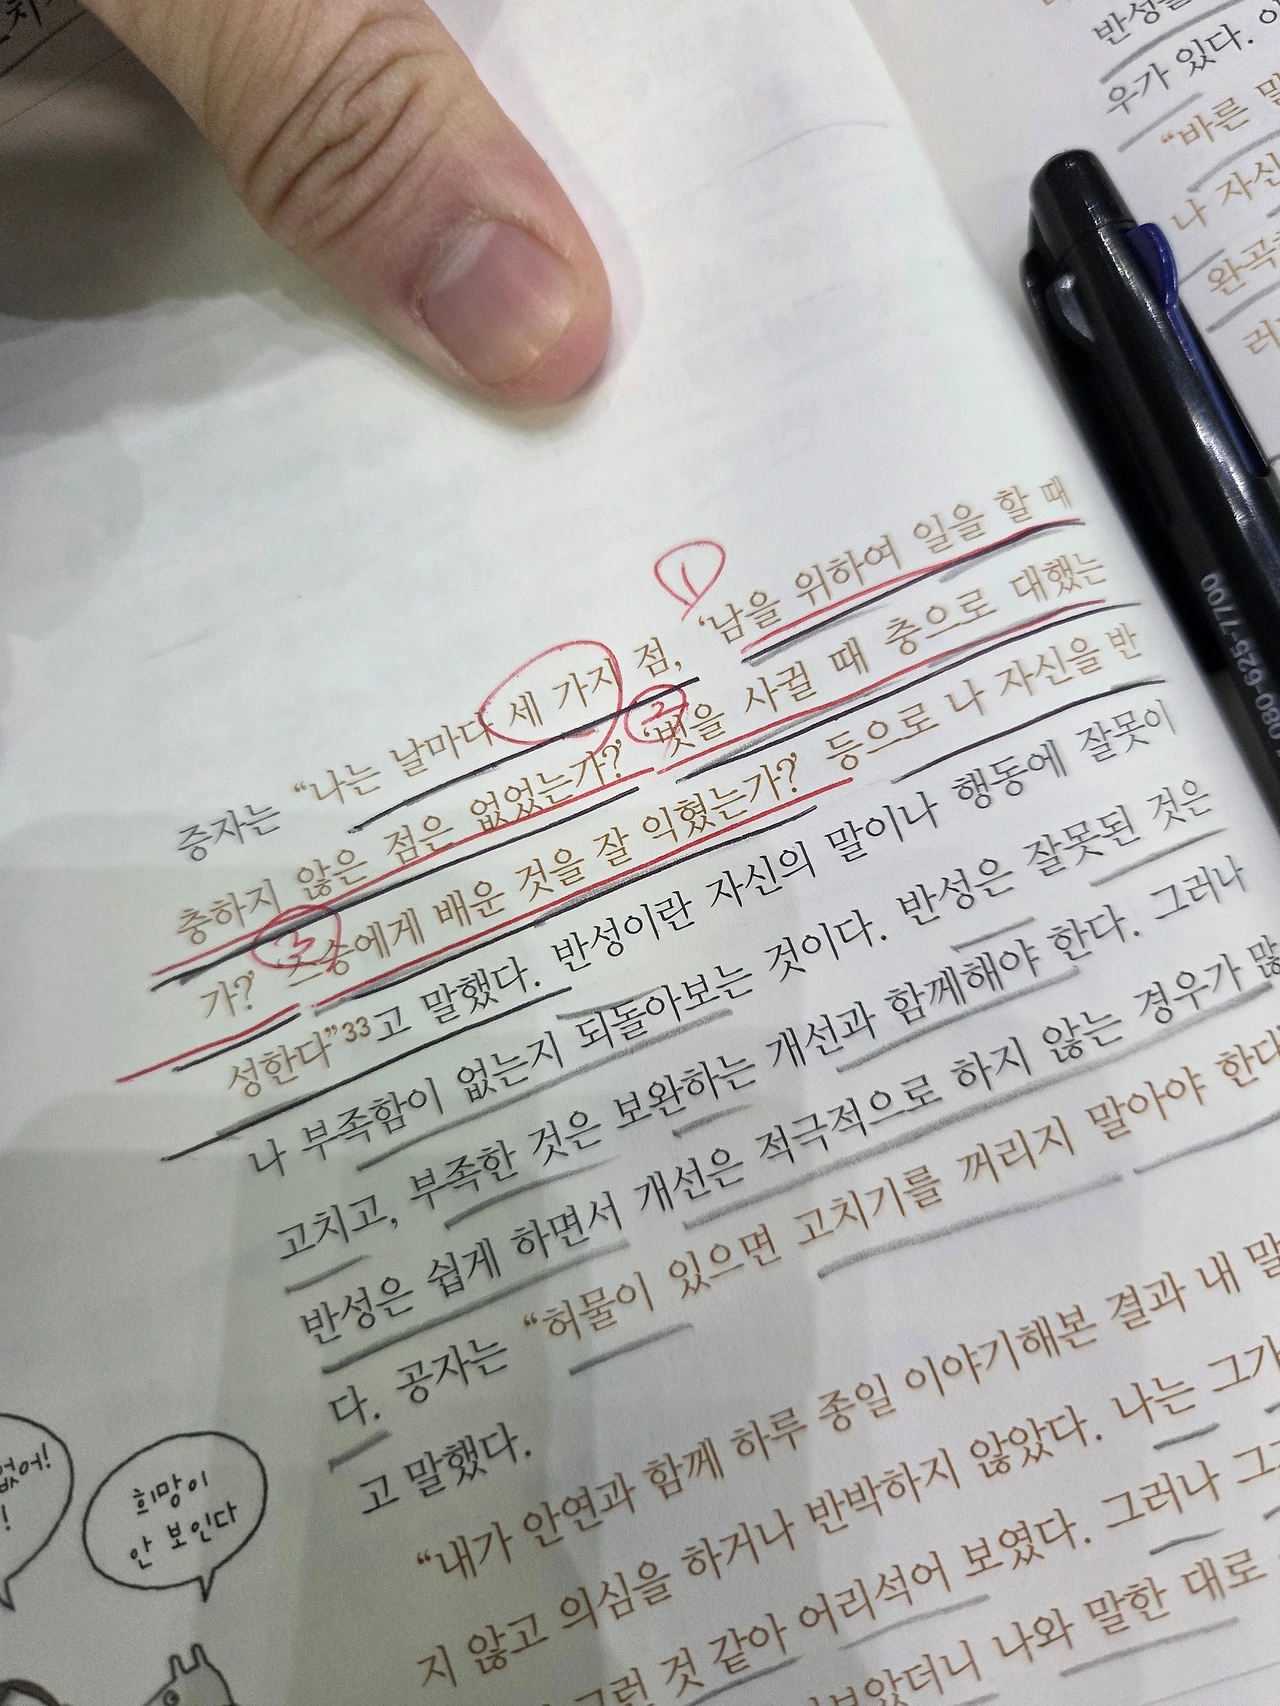 증자는 “나는 날마다 세 가지 점, ‘남을 위하여 일을 할 때
충하지 않은 점은 없었는가?’ ‘벗을 사귈 때 충으로 대했는
가?’ ‘스승에게 배운 것을 잘 익혔는가?’ 등으로 나 자신을 반
성한다”33고 말했다. 반성이란 자신의 말이나 행동에 잘못이
나 부족함이 없는지 되돌아보는 것이다. 반성은 잘못된 것은
고치고, 부족한 것은 보완하는 개선과 함께해야 한다. 그러나
반성은 쉽게 하면서 개선은 적극적으로 하지 않는 경우가 많
다. 공자는 “허물이 있으면 고치기를 꺼리지 말아야 한다
고 말했다.
“내가 안연과 함께 하루 종일 이야기해본 결과 내 말
지 않고 의심을 하거나 반박하지 않았다. 나는 그가
그런 것 같아 어리석어 보였다. 그러나 그
보았더니 나와 말한 대로
①
②
③
없어!
!
희망이
안 보인다
반성을
우가 있다.
“바른
나 자신
완곡
러
080-625-7700